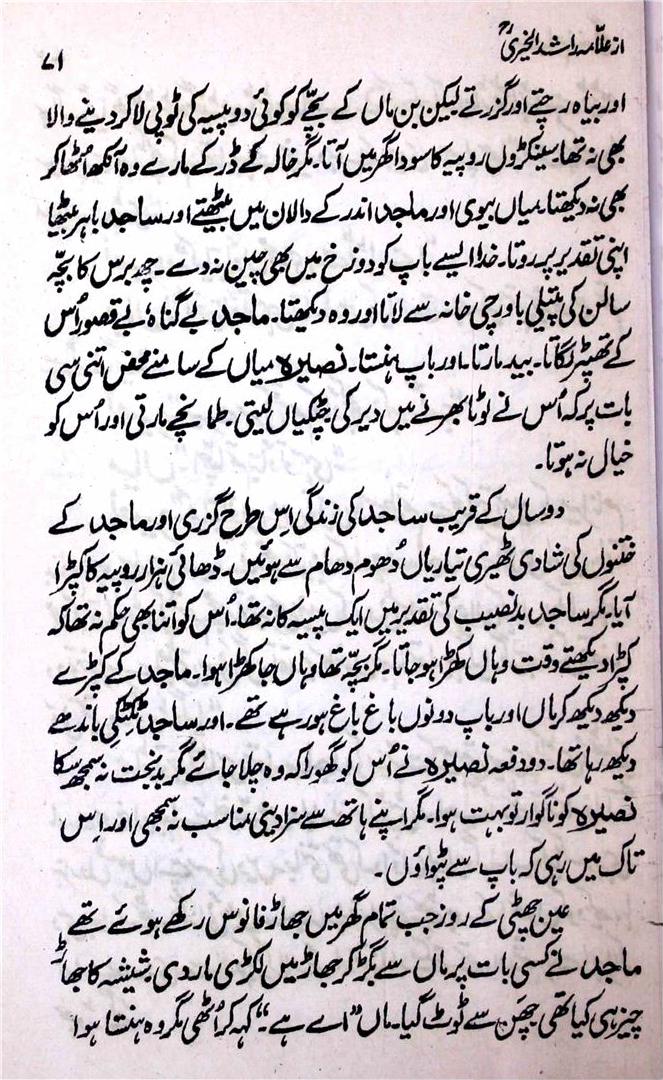 از علّامہ راشد الخیریؒ
۷۱
اور بیاہ رچتے اور گزرتے لیکن بن ماں کے بچّے کو کوئی دو پیسہ کی ٹوپی لا کر دینے والا
بھی نہ تھا۔ سینکڑوں روپیہ کا سودا گھر میں آتا۔ مگر خالہ کے ڈر کے مارے وہ آنکھ اُٹھا کر
بھی نہ دیکھتا۔ میاں بیوی اور ماجد اندر کے دالان میں بیٹھتے اور ساجد باہر بیٹھا
اپنی تقدیر پر روتا۔ خدا ایسے باپ کو دوزخ میں بھی چین نہ دے۔ چھ برس کا بچّہ
سالن کی پتیلی باورچی خانہ سے لاتا اور وہ دیکھتا۔ ماجد بے گناہ بے قصور اُس
کے تھپڑ لگاتا۔ بید مارتا۔ اور باپ ہنستا۔ نصیرہ میاں کے سامنے محض اتنی سی
بات پر کہ اُس نے لوٹا بھرنے میں دیر کی چٹکیاں لیتی۔ طمانچے مارتی اور اُس کو
خیال نہ ہوتا۔
دو سال کے قریب ساجد کی زندگی اِس طرح گزری اور ماجد کے
ختنوں کی شادی ٹھیری تیاریاں دُھوم دھام سے ہوئیں۔ ڈھائی ہزار روپیہ کا کپڑا
آیا۔ مگر ساجد بدنصیب کی تقدیر میں ایک پیسہ کا نہ تھا۔ اُس کو اتنا بھی حکم نہ تھا کہ
کپڑا دیکھتے وقت وہاں کھڑا ہو جاتا۔ مگر بچّہ تھا وہاں جا کھڑا ہوا۔ ماجد کے کپڑے
دیکھ دیکھ کر ماں اور باپ دونوں باغ باغ ہو رہے تھے۔ اور ساجد ٹکٹکی باندھے
دیکھ رہا تھا۔ دو دفعہ نصیرہ نے اُس کو گھورا کہ وہ چلا جائے مگر بدبخت نہ سمجھ سکا
نصیرہ کو ناگوار تو بہت ہوا۔ مگر اپنے ہاتھ سے سزا دینی مناسب نہ سمجھی اور اِس
تاک میں رہی کہ باپ سے پٹواؤں۔
عین چھٹی کے روز جب تمام گھر میں جھاڑ فانوس رکھے ہوئے تھے
ماجد نے کسی بات پر ماں سے بگڑ کر جھاڑ میں لکڑی مار دی۔ شیشہ کا جھاڑ
چیز ہی کیا تھی چھَن سے ٹوٹ گیا۔ ماں "اے ہے۔" کہہ کر اُٹھی مگر وہ ہنستا ہوا